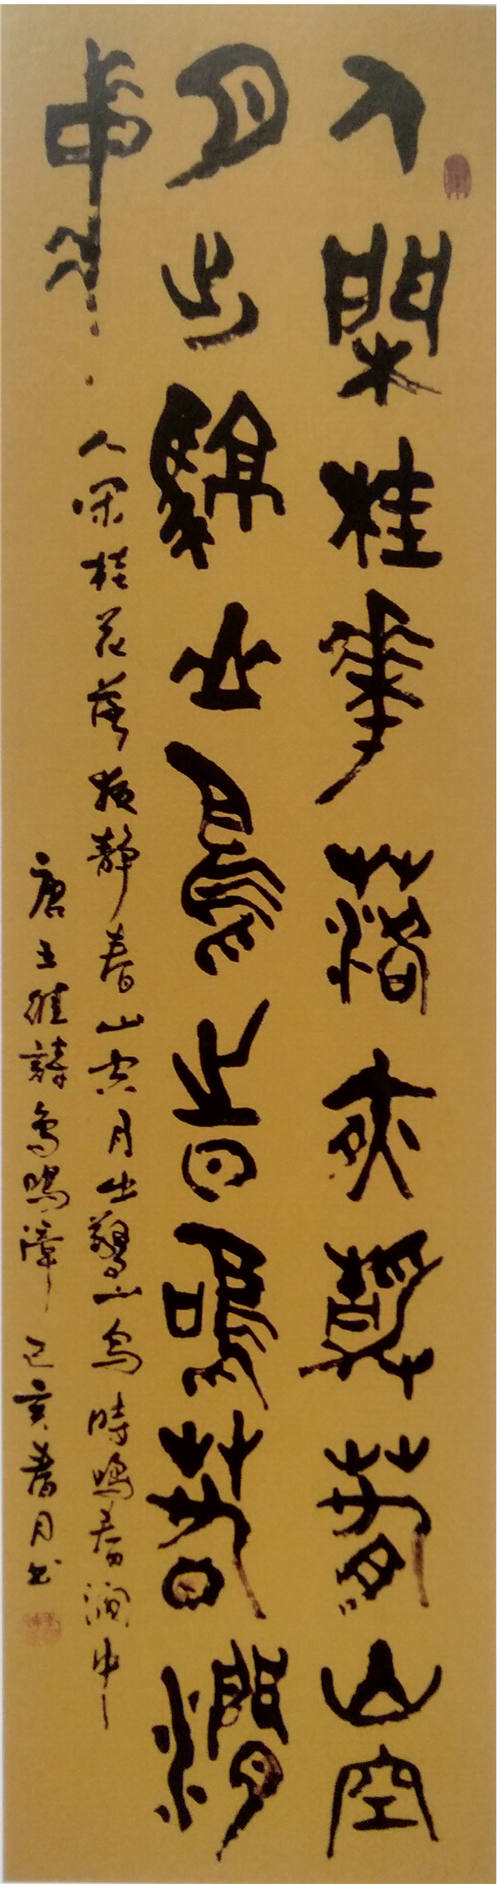 人閑桂華落夜靜春山空
月出驚山鳥時鳴春澗
中
人閑桂花落夜静春山空月出驚山鳥時鳴春澗中
唐王維詩鳥鳴澗己亥春月书